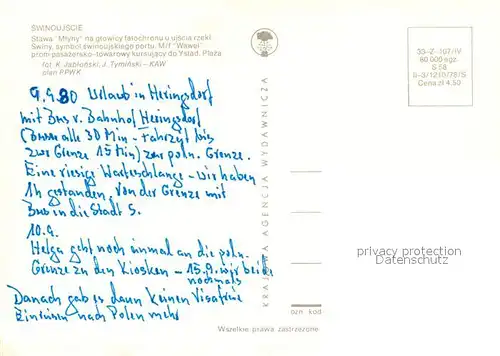 ŚWINOUJŚCIE
Stawa "Młyny" na głowicy falochronu u ujścia rzeki
Świny, symbol świnoujskiego portu. M/f "Wawel"
prom pasażersko-towarowy kursujący do Ystad. Plaża
fot. K. Jabłoński, J. Tymiński – KAW
olen PPWK
33-Z-107/IV
80.000 egz.
S 68
Cena zł 4.50
9.9.80 Urlaub in Heringsdorf
mit Bus v. Bahnhof Heringsdorf
(Busse alle 30 Min – Fahrzeit bis
zur Grenze 15 Min) zur poln. Grenze.
Eine riesige Warteschlange – wir haben
1h gestanden, von der Grenze mit
Bus in die Stadt S.
10.9.
Helga geht noch einmal an die poln.
Grenze zu den Kiosken – 15.9. wir beide
nochmals
Danach gab es dann keinen Visafreie
Einreisen nach Polen mehr
KRAJOWA AGENCJA WYDAWNICZA
ozn kod
Wszelkie prawa zastrzeżone
privacy protection